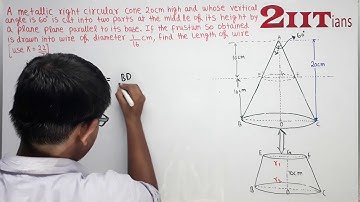 A metallic right circular cone 20cm high and whose vertical
angle is 60° is cut into two parts at the middle of its height by
a plane plane parallel to its base. If the frustum so obtained
is drawn into wire of diameter 1/16 cm, find the length of wire
[use π = 22/
= BD
2IITians
A
60°
10cm
20cm
10cm
B
C
r₁
r₂
10cm
B
C